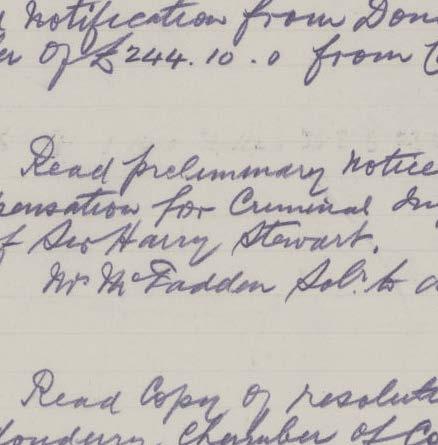 Notification from Don
er of £244.10.0 from
Read preliminary notice
pensation for Criminal In
of Sir Harry Stewart.
Mr McFadden Solr. to
Read Copy of resolut
Londonderry Chamber of C